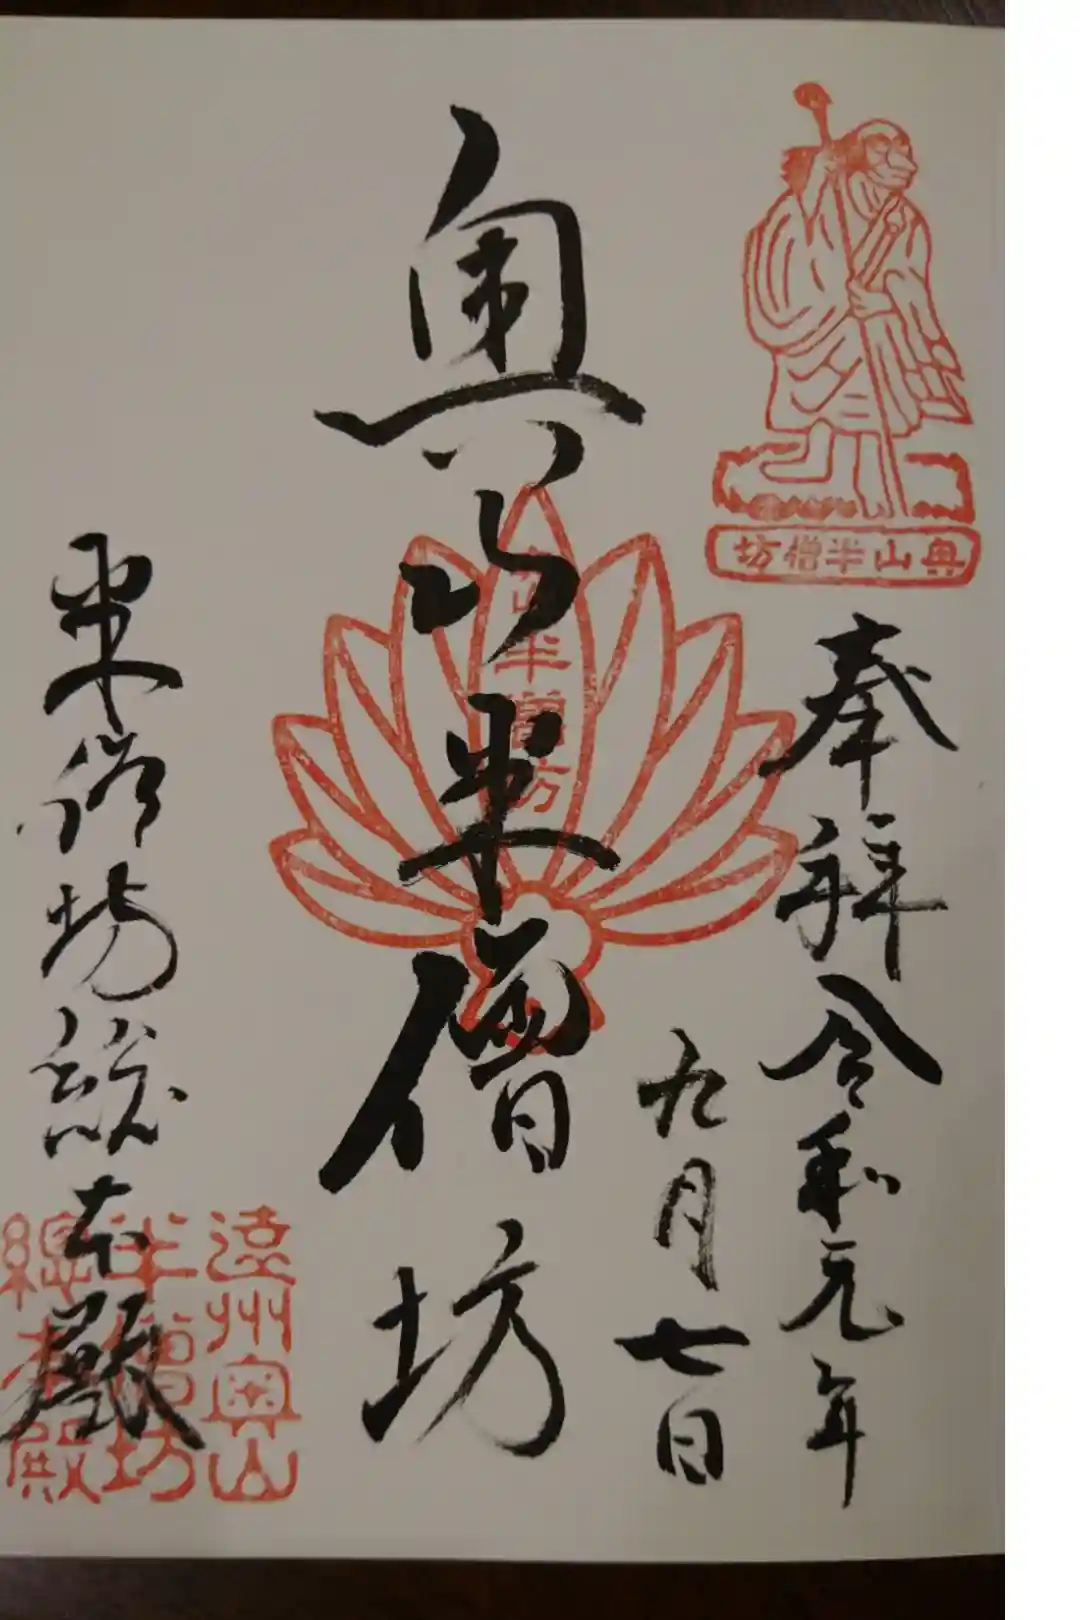 奥山半僧坊
奉拝 令和元年
九月七日
奥山半僧坊
山半僧坊
半僧坊総本殿
遠州奥山
半僧坊
總本殿